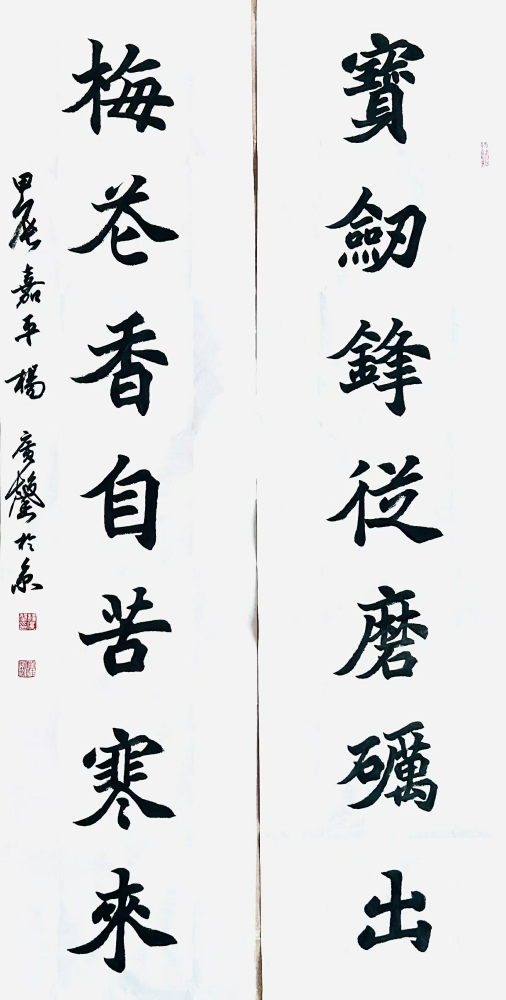 寶劒鋒從磨礪出
梅花香自苦寒來
甲辰嘉平楊廣馨於京